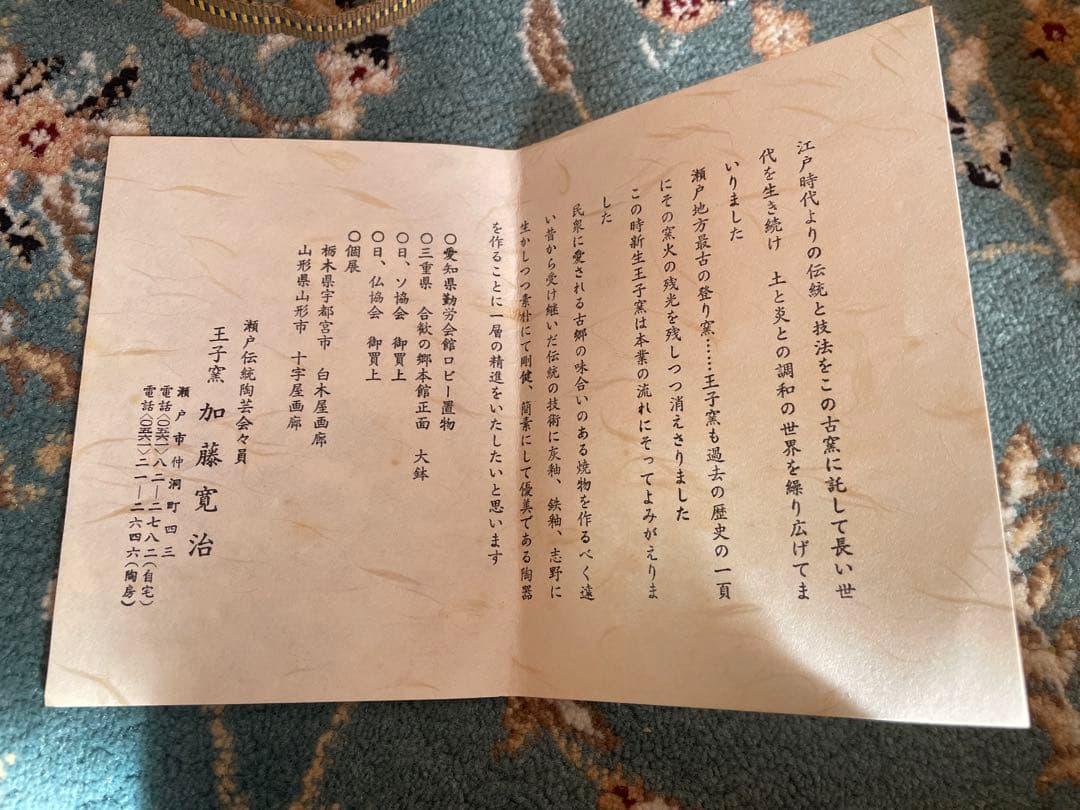 江戸時代よりの伝統と技法をこの古窯に託して長い世
代を生き続け　土と炎との調和の世界を繰り広げてま
いりました
瀬戸地方最古の登り窯……王子窯も過去の歴史の一頁
にその窯火の残光を残しつつ消えさりました
この時新生王子窯は本業の流れにそってよみがえりま
した
民衆に愛される古郷の味合いのある焼物を作るべく遠
い昔から受け継いだ伝統の技術に灰釉、鉄釉、志野に
生かしつつ素朴にて剛健、簡素にして優美である陶器
を作ることに一層の精進をいたしたいと思います
〇愛知県勤労会館ロビー置物
〇三重県　合歓の郷本館正面　大鉢
〇日、ソ協会　御買上
〇日、仏協会　御買上
〇個展
栃木県宇都宮市　白木屋画廊
山形県山形市　十字屋画廊
瀬戸伝統陶芸会々員
王子窯　加藤寛治
瀬戸市仲洞町四三
電話〈〇五六一〉八二―二七八二（自宅）
電話〈〇五六一〉二一―二六四六（陶房）